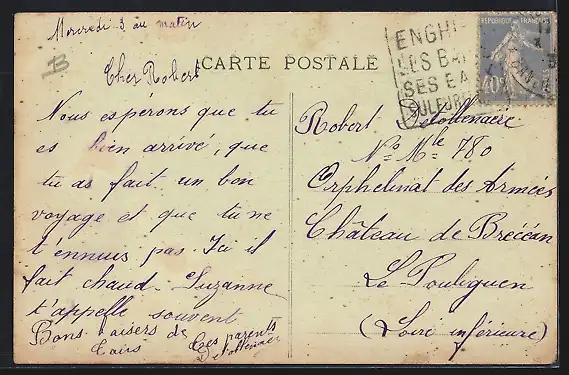 Mercredi 3 au matin
CARTE POSTALE
Cher Robert
Nous esperons que tu
es bien arrivé, que
tu as fait un bon
voyage et que tu ne
t'ennuis pas Ici il
fait chaud. Suzanne
t'appelle souvent
Bons baisers de
tous
Tes parents
Detollenaere
ENGHI
LES BA
SES EA
SULFURE
REPUBLIQUE FRANÇAISE
40c
Robert Detollenaere
No Mle 780
Orphelinat des Armées
Château de
Le Pouliguen
(Loire inférieure)